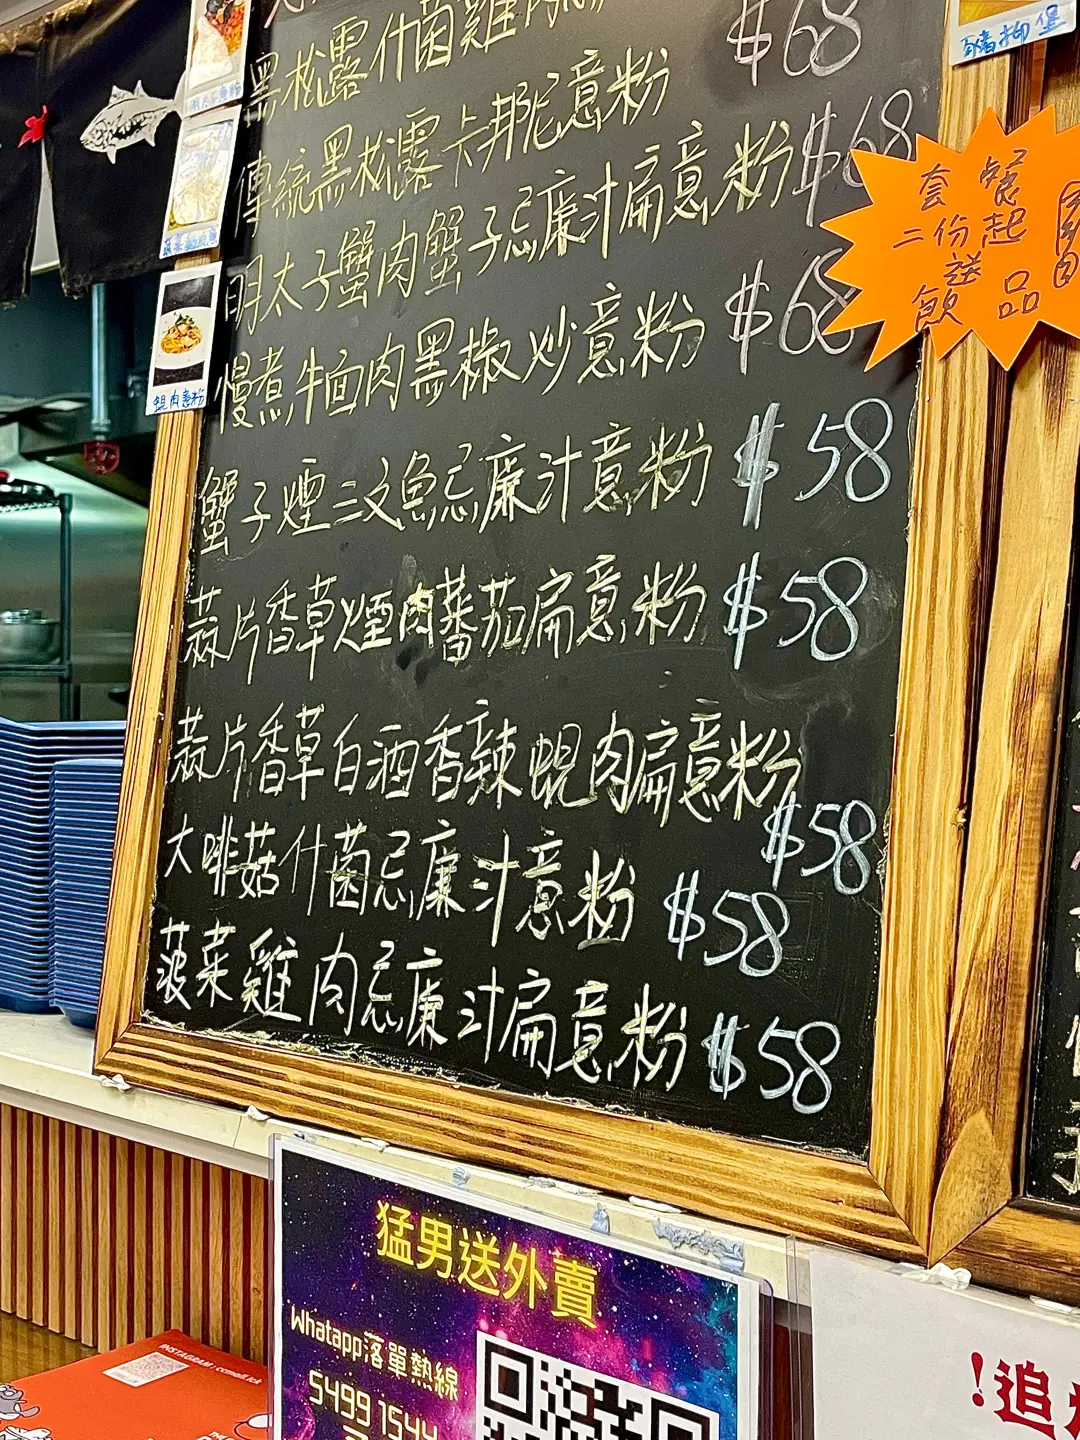 黑松露什菌雞肉
$68
傳統黑松露卡邦尼意粉
$68
明太子蟹肉蟹子忌廉汁扁意粉
$68
慢煮牛面肉黑椒炒意粉
$58
蟹子煙三文魚忌廉汁意粉
$58
蒜片香草煙肉蕃茄扁意粉
$58
蒜片香草白酒香辣蜆肉扁意粉
$58
大啡菇什菌忌廉汁意粉
$58
菠菜雞肉忌廉汁扁意粉
$58
蜆肉意粉
豬柳堡
套餐
二份起
送
飲品
猛男送外賣
Whatapp落單熱線
5499 1544
!追